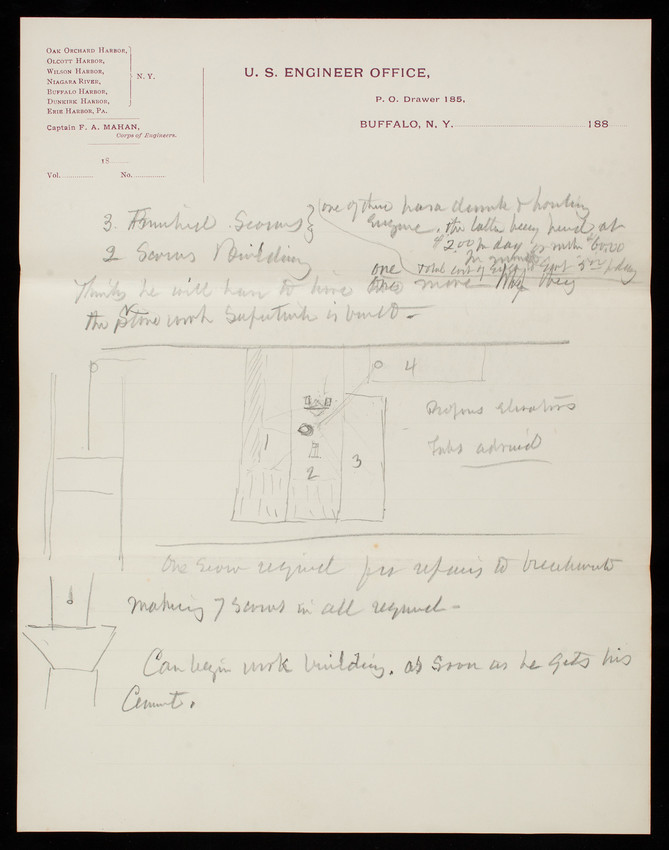 OAK ORCHARD HARBOR,
OLCOTT HARBOR,
WILSON HARBOR,
NIAGARA RIVER,
BUFFALO HARBOR,
DUNKIRK HARBOR,
ERIE HARBOR, PA.
N. Y.
Captain F. A. MAHAN,
Corps of Engineers.
18
Vol. No.
U. S. ENGINEER OFFICE,
P. O. Drawer 185,
BUFFALO, N. Y. 188
3 Finished Scows
one of these has a derrick & hoisting
Engine, the latter being hired at
$2.00 pr day or
2 Scows Building
total cost of
Thinks he will have to hire one more
the Stone work is built -
1
2
3
4
Elevators
Tubs advised
One Scow required for repairs to breakwater
making 7 Scows in all required -
Can begin work building, as soon as he gets his
Cement.